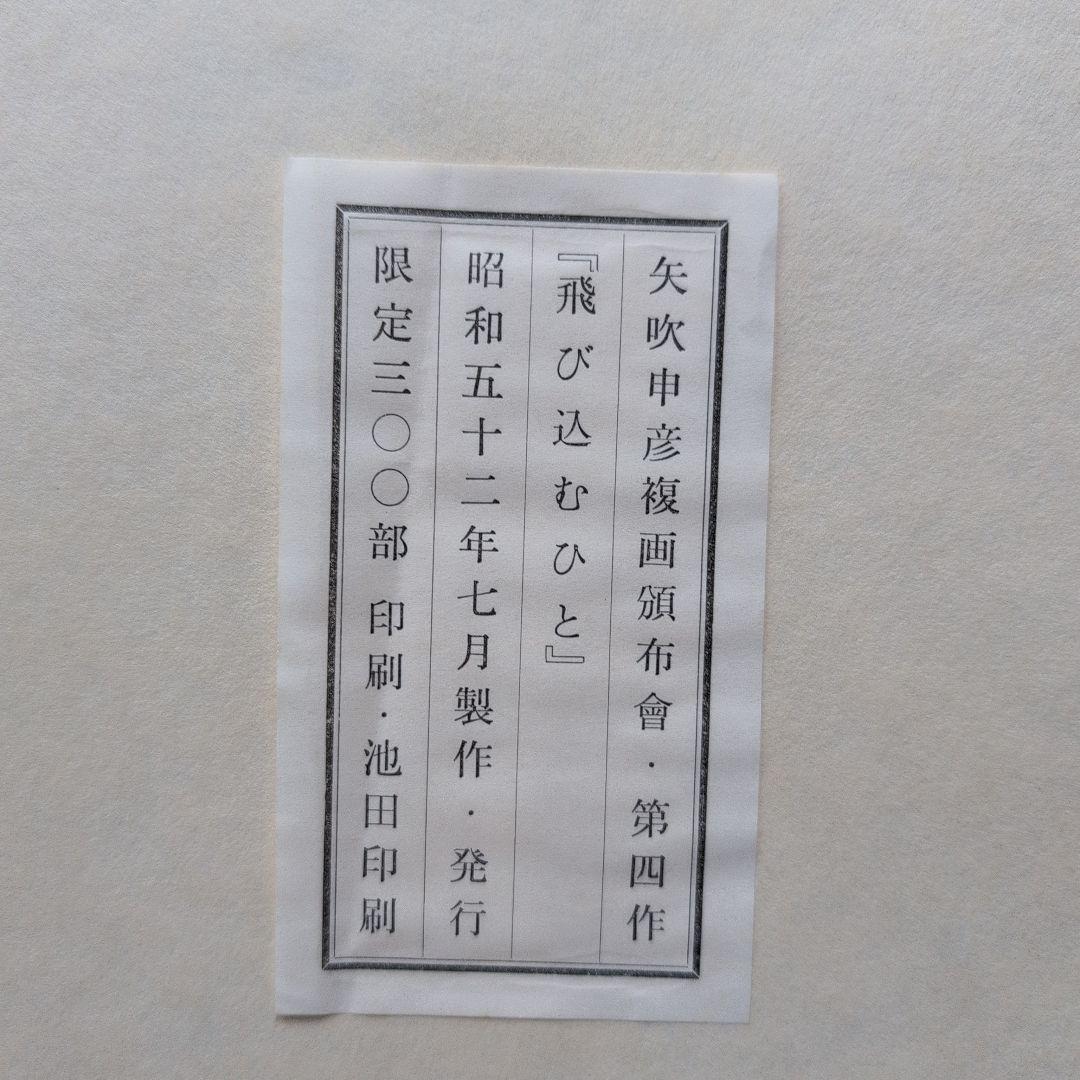 矢吹申彦複画頒布會・第四作
『飛び込むひと』
昭和五十二年七月製作・発行
限定三〇〇部 印刷・池田印刷